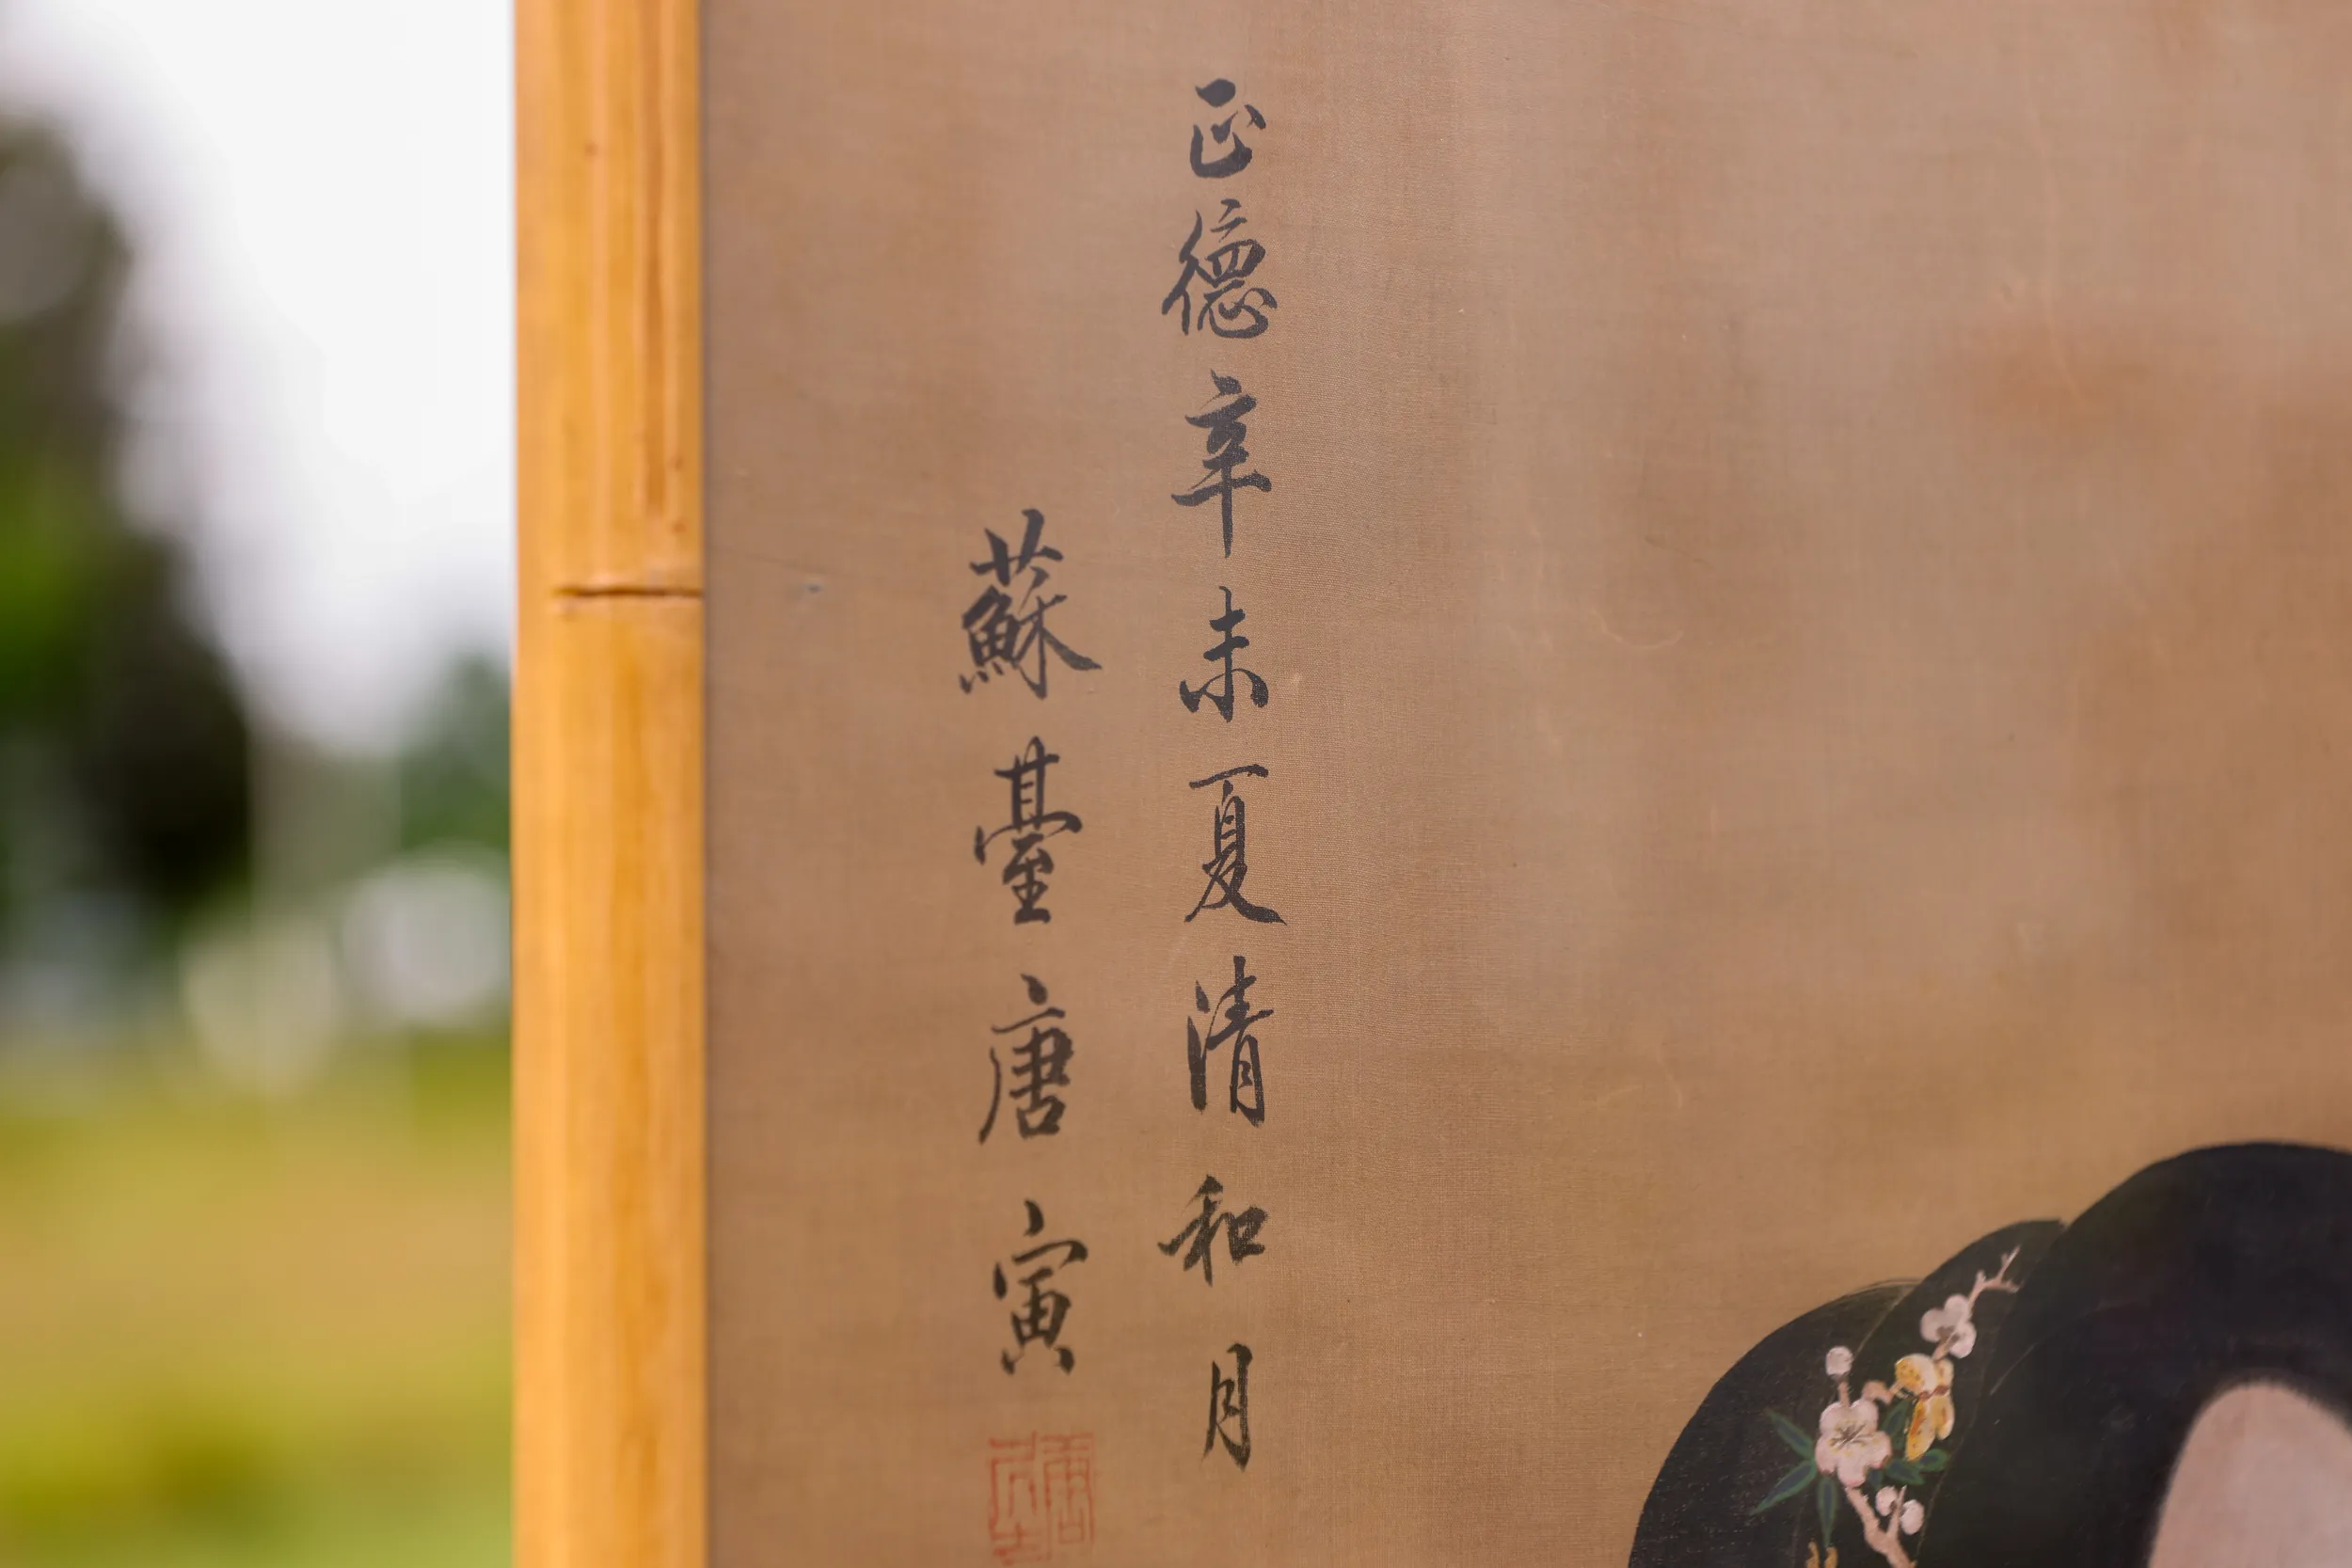 正德辛未夏清和月
蘇臺唐寅